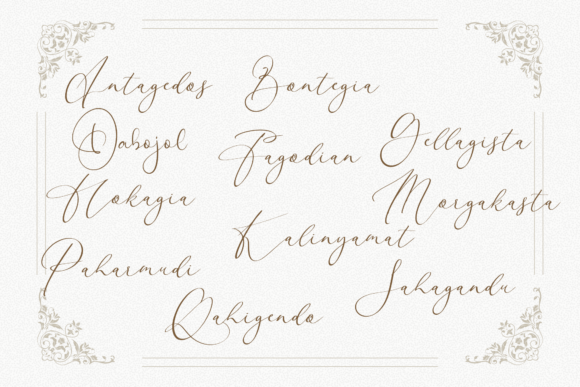 Antagedos Bontegia
Dabojol Fagodian Gellagista
Hokagia Morgakasta
Kalinyamat
Paharmudi Sahagandu
Qahigendo